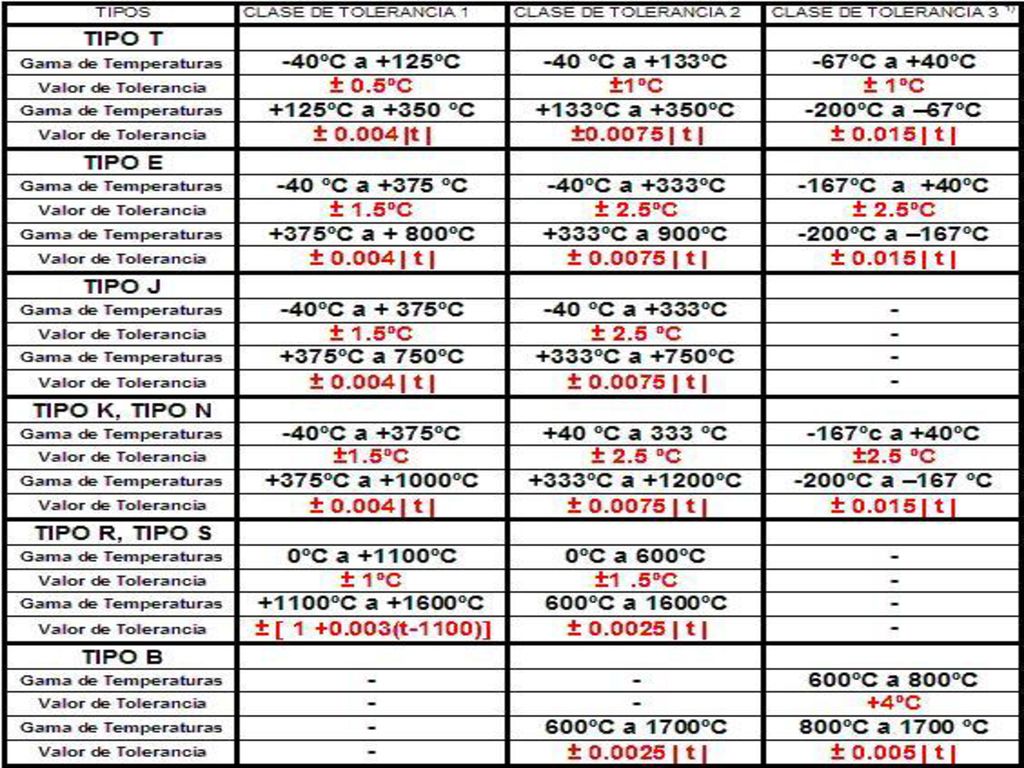 TIPOS CLASE DE TOLERANCIA 1 CLASE DE TOLERANCIA 2 CLASE DE TOLERANCIA 3 ¹⁾
TIPO T
Gama de Temperaturas -40ºC a +125ºC -40 ºC a +133ºC -67ºC a +40ºC
Valor de Tolerancia ± 0.5ºC ±1ºC ± 1ºC
Gama de Temperaturas +125ºC a +350 ºC +133ºC a +350ºC -200ºC a –67ºC
Valor de Tolerancia ± 0.004 |t | ±0.0075 | t | ± 0.015 | t |
TIPO E
Gama de Temperaturas -40 ºC a +375 ºC -40ºC a +333ºC -167ºC a +40ºC
Valor de Tolerancia ± 1.5ºC ± 2.5ºC ± 2.5ºC
Gama de Temperaturas +375ºC a + 800ºC +333ºC a 900ºC -200ºC a –167ºC
Valor de Tolerancia ± 0.004 | t | ± 0.0075 | t | ± 0.015 | t |
TIPO J
Gama de Temperaturas -40ºC a + 375ºC -40 ºC a +333ºC -
Valor de Tolerancia ± 1.5ºC ± 2.5 ºC -
Gama de Temperaturas +375ºC a 750ºC +333ºC a +750ºC -
Valor de Tolerancia ± 0.004 | t | ± 0.0075 | t | -
TIPO K, TIPO N
Gama de Temperaturas -40ºC a +375ºC +40 ºC a 333 ºC -167ºc a +40ºC
Valor de Tolerancia ±1.5ºC ± 2.5 ºC ±2.5 ºC
Gama de Temperaturas +375ºC a +1000ºC +333ºC a +1200ºC -200ºC a –167 ºC
Valor de Tolerancia ± 0.004 | t | ± 0.0075 | t | ± 0.015 | t |
TIPO R, TIPO S
Gama de Temperaturas 0ºC a +1100ºC 0ºC a 600ºC -
Valor de Tolerancia ± 1ºC ±1 .5ºC -
Gama de Temperaturas +1100ºC a +1600ºC 600ºC a 1600ºC -
Valor de Tolerancia ± [ 1 +0.003(t-1100)] ± 0.0025 | t | -
TIPO B
Gama de Temperaturas - - 600ºC a 800ºC
Valor de Tolerancia - - +4ºC
Gama de Temperaturas - 600ºC a 1700ºC 800ºC a 1700 ºC
Valor de Tolerancia - ± 0.0025 | t | ± 0.005 | t |